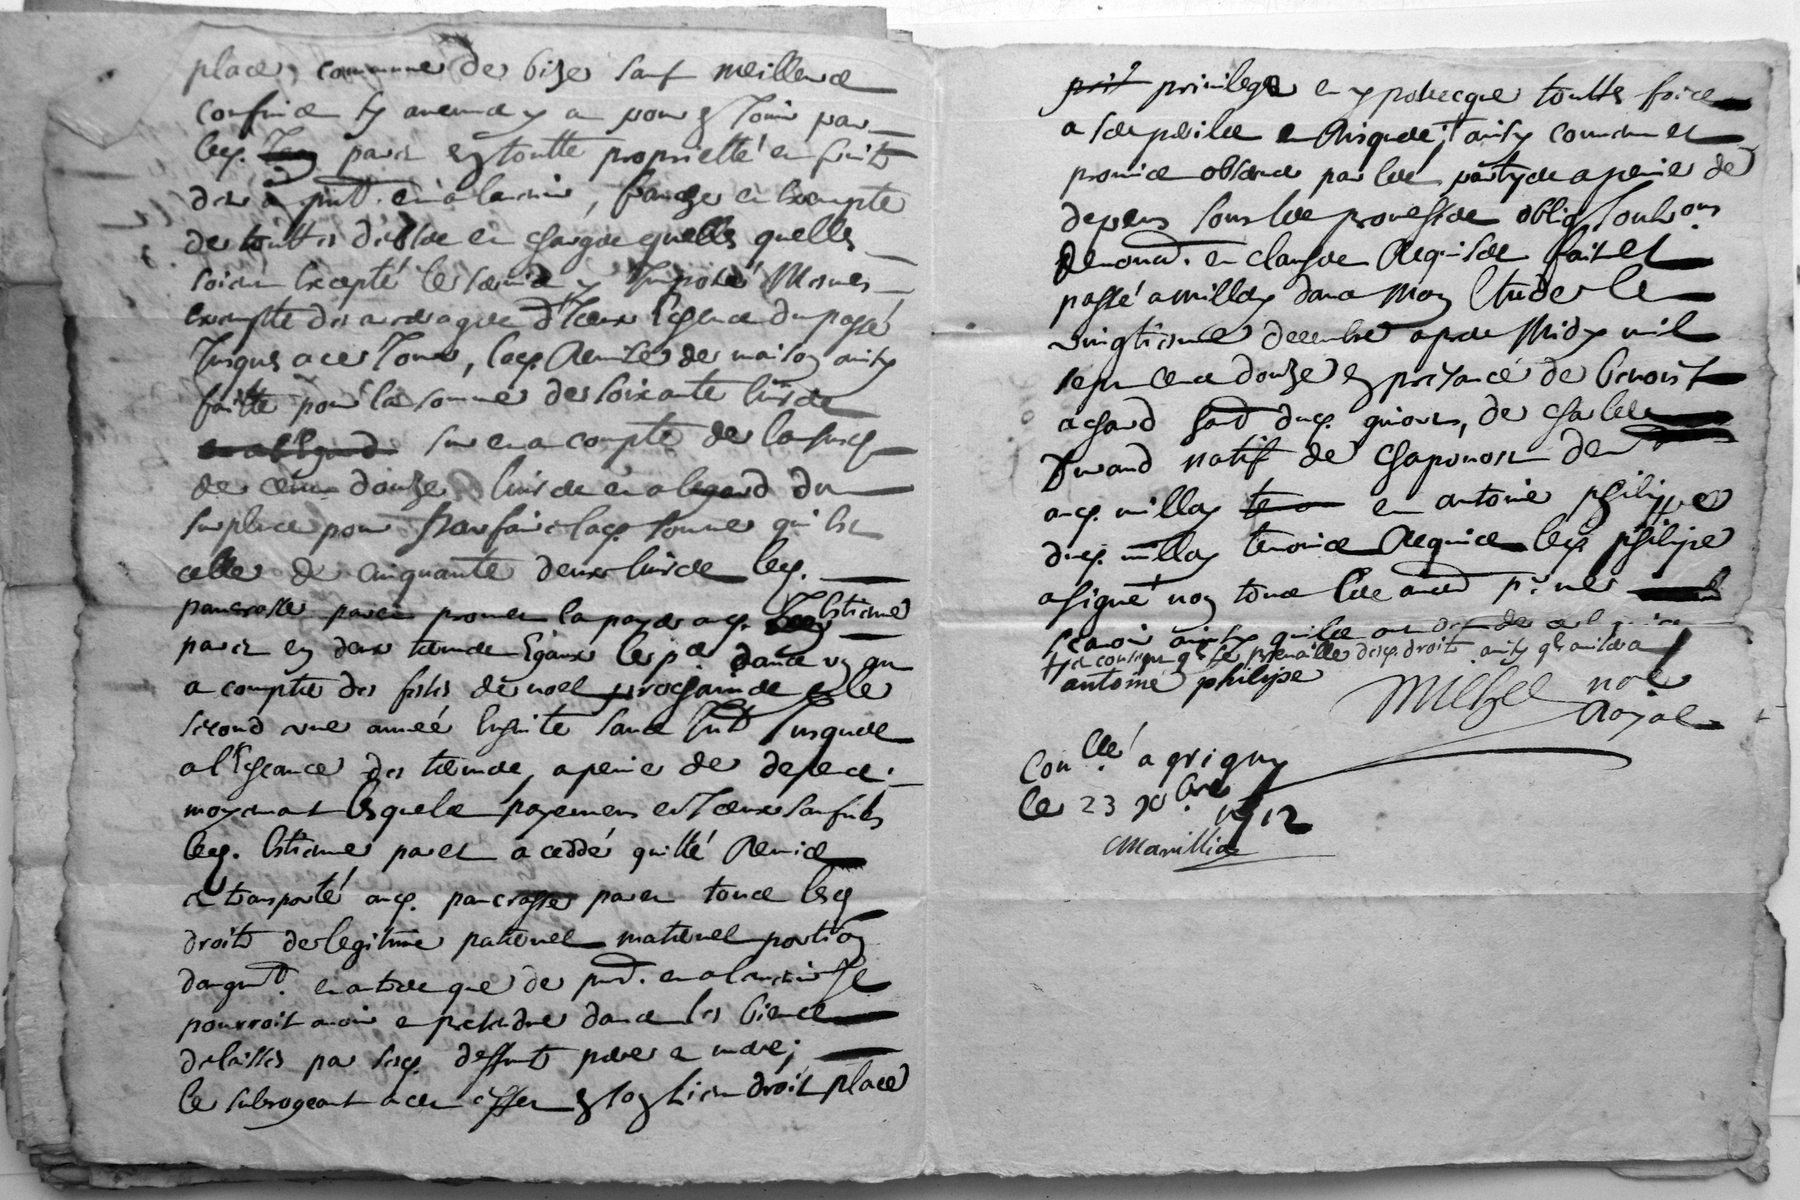 place, commune de bize sauf meilleurs
confins sy aucuns y a pour en Jouir par
led. paret en toutte proprietté en fruits
des à pnt. en à la venir, franche en exempte
de touttes debtes en charges quelles quelles
soient Excepté le servis y Imposé Mesmes
exempte des arrerages d'Iceux Escheus du passé
Jusques a ces Jour, lad. Remise de maison ainsy
faitte pour la somme de soixante livres
sur en a compte de la susd.
de cent douze livres en a legard du
surplus pour parfaire lad. somme qui est
celle de cinquante deux livres led.
pancrasse paret promet la payer aud. Estienne
paret en deux termes Egaux le pr. dans un an
a compter des festes de noel prochaines en le
second une année Ensuite sans Int. Jusques
a l'Escheance des termes, a peine de depens;
moyenant lesquels payemens et Iceux sansfaits
led. Estienne paret a ceddé quitté Remis
et transporté aud. pancrasse paret tous lesd
droits de legitime paternel maternel portion
d'augmt. en autres que de pnt. en a lavenir Il
pourroit avoir en pretendre dans les biens
delaissés par sesd. deffunts pere et mere;
le subrogeant a cet effet en son lieu droit place
privilege en ypotecque touttes fois
a ses perils en Risques; ainsy convenu et
promis observer par les partyes a peine de
depens sous les promesses oblig. soubm.ons
Renonc. en clauses Requises fait et
passé a millery dans Mon Etude le
vingtieme decembre apres Midy mil
sept cens douze en presance de benoist
achard dud. grigny, de charles
Durand natif de chaponost den
aud. millery en antoine philippe
dud. millery temoins Requis led philipe
a signé non tous les autres p. ne
scavoir ainsy quils ont
antoine philipe
Michel noe
Royal
Con.llé a grigny
le 23 Xbre
1712
Marillier